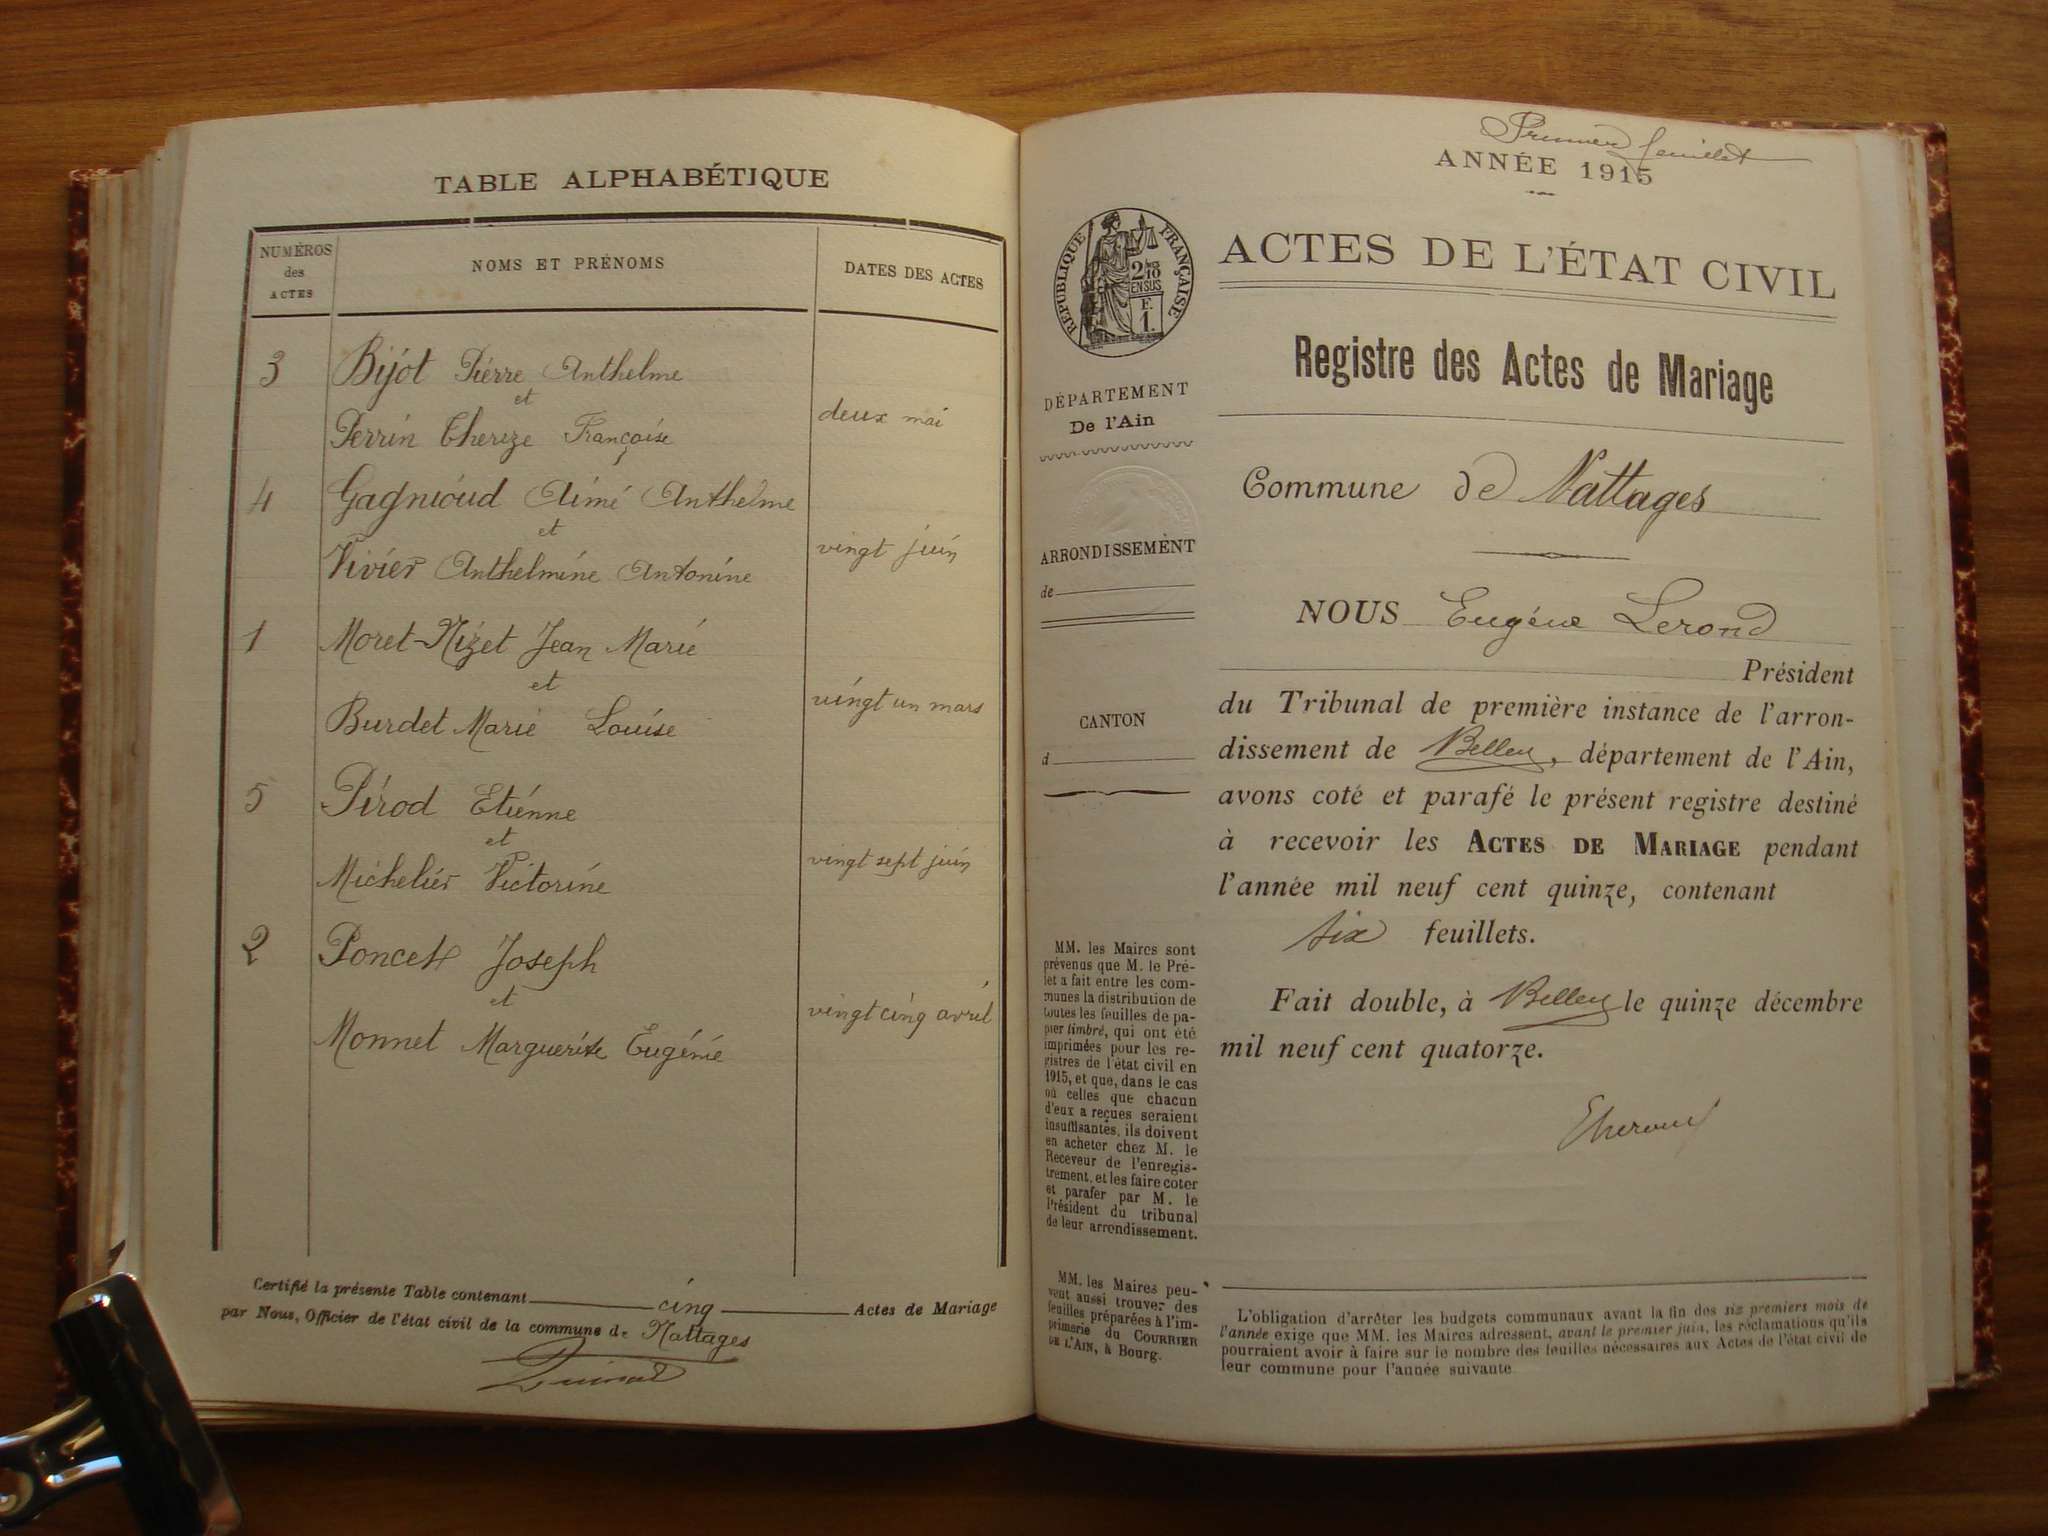 TABLE ALPHABÉTIQUE
NUMÉROS
des
ACTES
NOMS ET PRÉNOMS
DATES DES ACTES
3 Bijot Pierre Anthelme
et
deux mai
Perrin Thereze Françoise
4 Gagnioud Aimé Anthelme
et
vingt juin
Vivier Anthelmine Antonine
1 Moret-Mizet Jean Marie
et
vingt un mars
Burdet Marie Louise
5 Pirod Etiénne
et
vingt sept juin
Michelier Victorine
2 Poncet Joseph
et
vingt cinq avril
Monnet Marguerite Eugénie
Certifié la présente Table contenant cinq Actes de Mariage
par Nous, Officier de l'état civil de la commune de Nattages
Premier feuillet
ANNÉE 1915
RÉPUBLIQUE FRANÇAISE
2/10
EN SUS
F.
1.
ACTES DE L'ÉTAT CIVIL
Registre des Actes de Mariage
DÉPARTEMENT
De l'Ain
Commune de Nattages
ARRONDISSEMENT
de
NOUS Eugène Lerond
Président
CANTON
d
du Tribunal de première instance de l'arron-
dissement de Belley, département de l'Ain,
avons coté et parafé le présent registre destiné
à recevoir les ACTES DE MARIAGE pendant
l'année mil neuf cent quinze, contenant
six feuillets.
Fait double, à Belley le quinze décembre
mil neuf cent quatorze.
MM. les Maires sont
prévenus que M. le Pré-
fet a fait entre les com-
munes la distribution de
toutes les feuilles de pa-
pier timbré, qui ont été
imprimées pour les re-
gistres de l'état civil en
1915, et que, dans le cas
où celles que chacun
d'eux a reçues seraient
insuffisantes, ils doivent
en acheter chez M. le
Receveur de l'enregis-
trement, et les faire coter
et parafer par M. le
Président du tribunal
de leur arrondissement.
MM. les Maires peu-
vent aussi trouver des
feuilles préparées à l'im-
primerie du COURRIER
DE L'AIN, à Bourg.
L'obligation d'arrêter les budgets communaux avant la fin des six premiers mois de
l'année exige que MM. les Maires adressent, avant le premier juin, les réclamations qu'ils
pourraient avoir à faire sur le nombre des feuilles nécessaires aux Actes de l'état civil de
leur commune pour l'année suivante